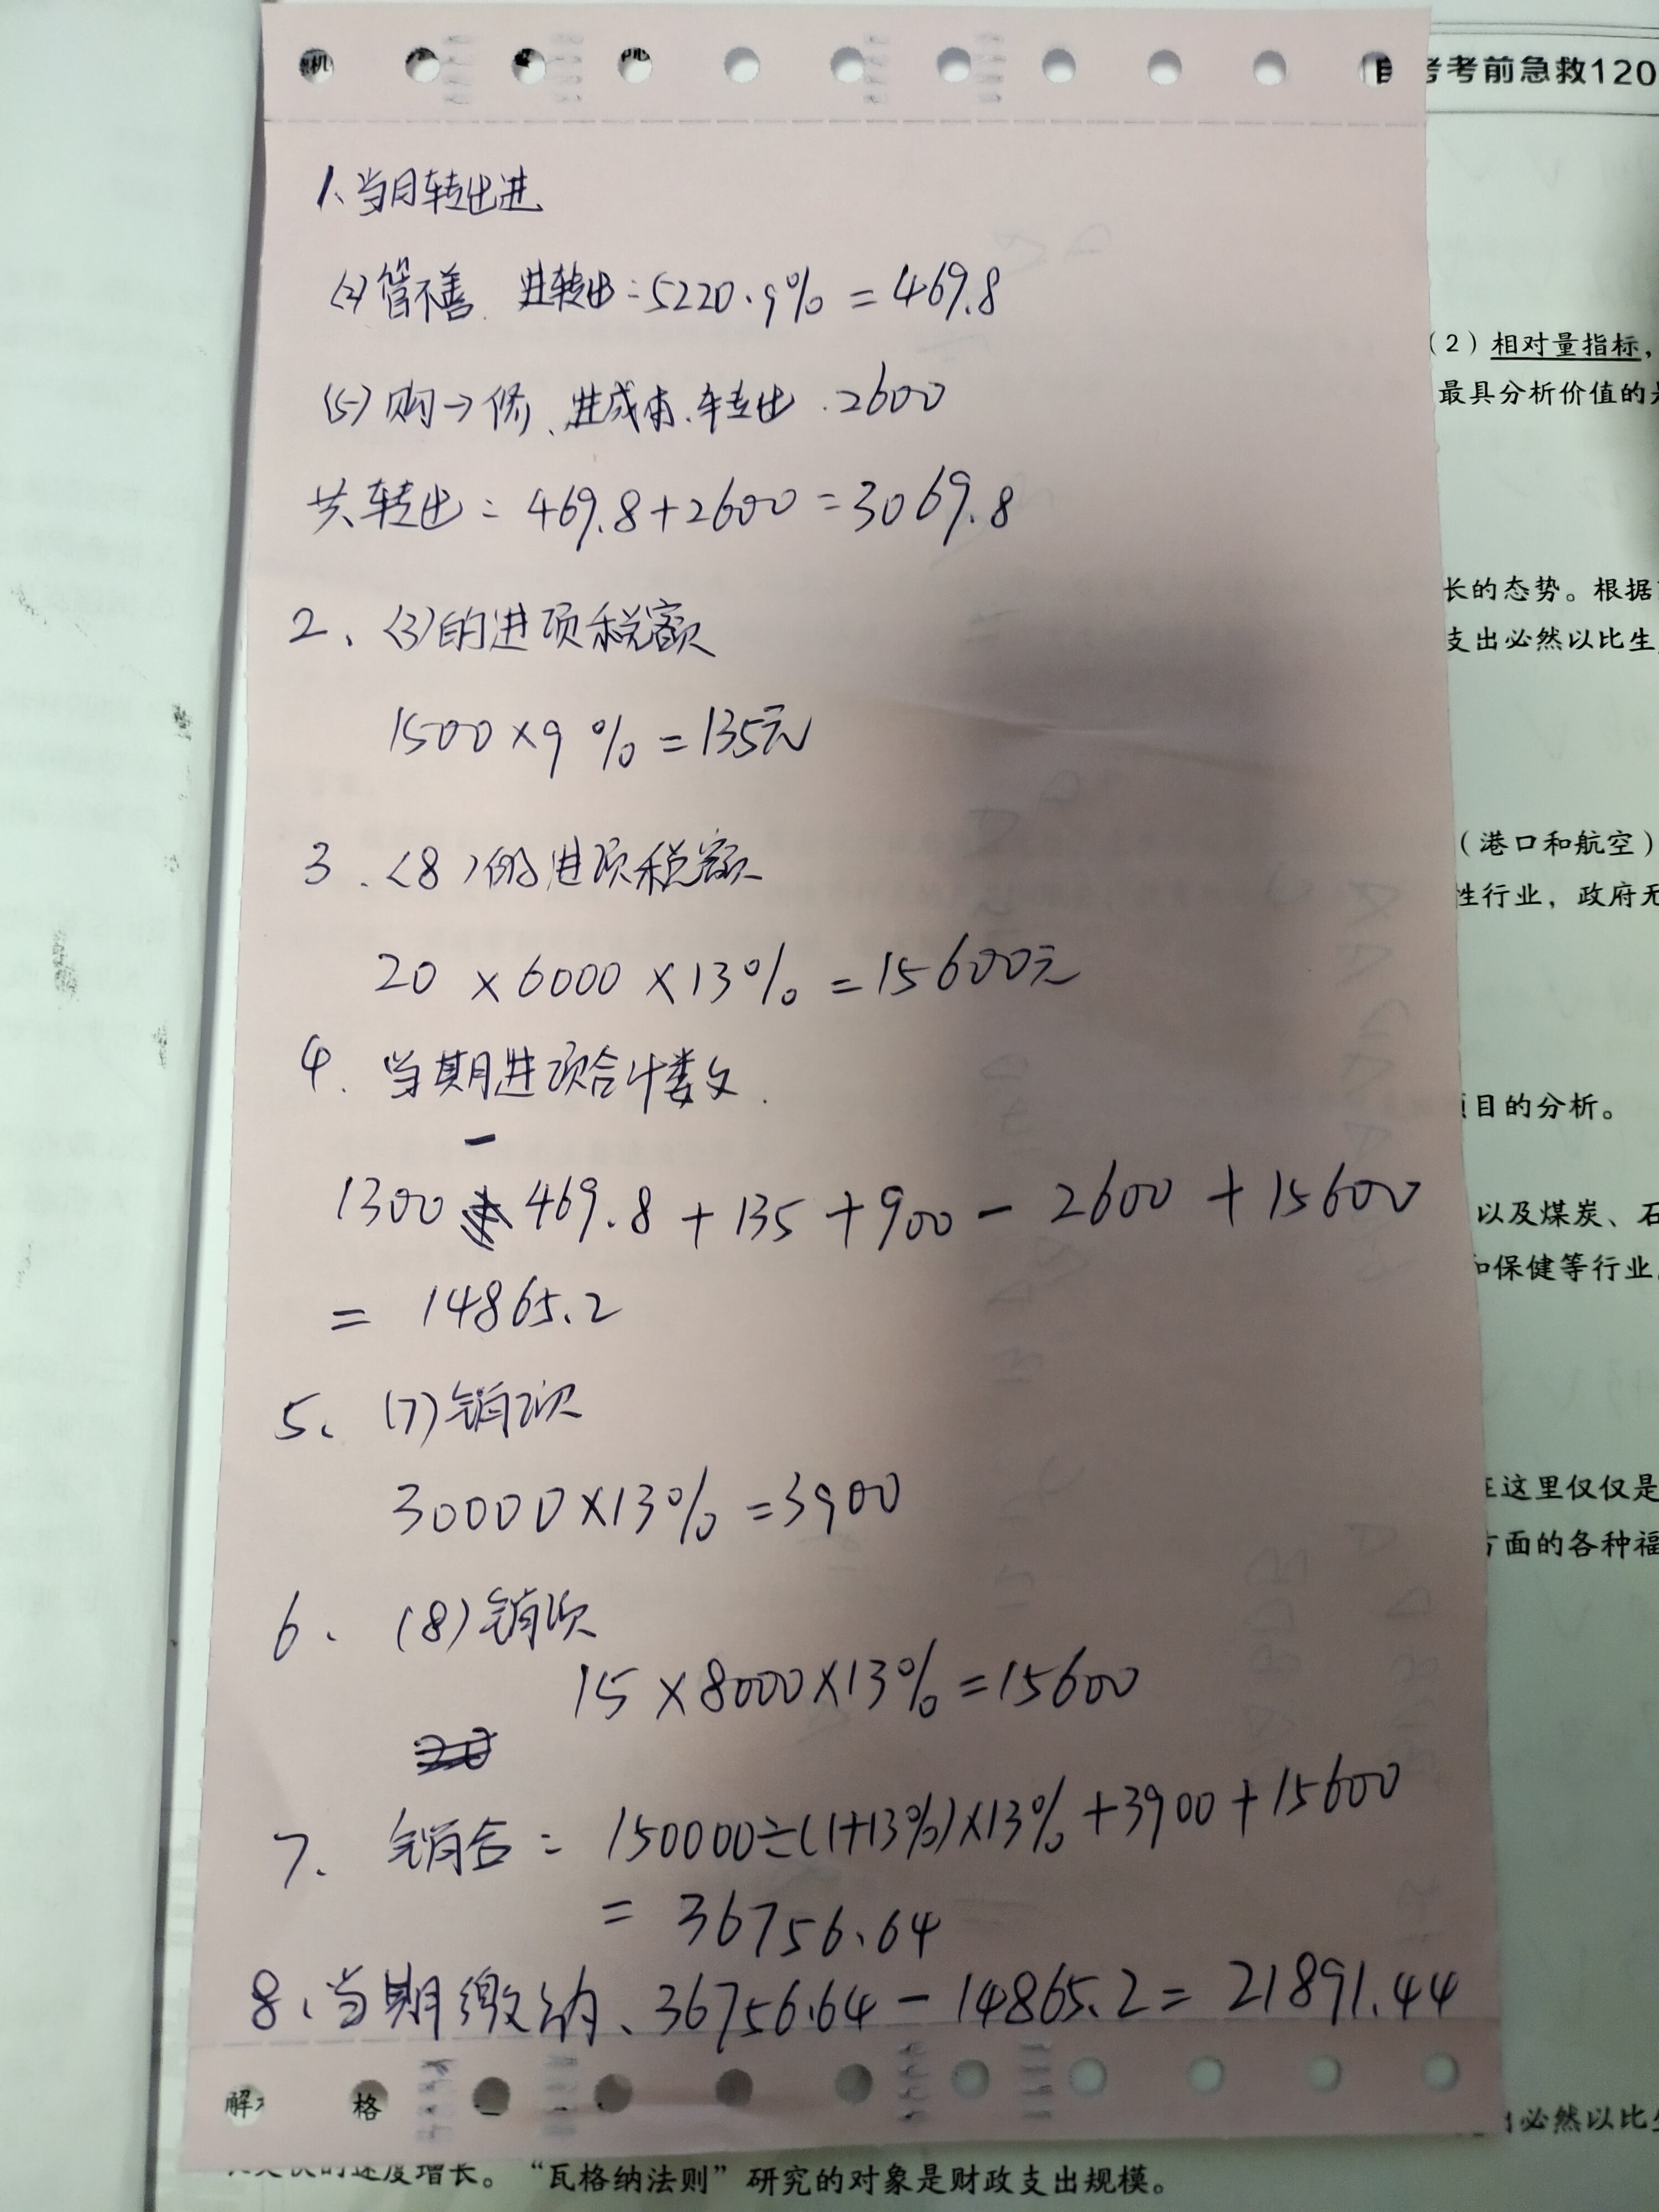 考考前急救120
1、当月转出进
(2)管不善. 进转出=5220·9%=469.8
(2)相对量指标,
最具分析价值的
(5)购→修、进成本.转出.2600
共转出=469.8+2600=3069.8
长的态势。根据
2、(3)的进项税额
支出必然以比生
1500×9%=135元
3.(8)的进项税额
(港口和航空)
性行业,政府无
20×6000×13%=15600元
4.当期进项合计数.
目的分析。
1300-469.8+135+900-2600+15600
以及煤炭、石
和保健等行业
=14865.2
5、(7)销项
30000×13%=3900
在这里仅仅是
方面的各种福
6、(8)销项
15×8000×13%=15600
7、销合=150000÷(1+13%)×13%+3900+15600
=36756.64
8、当期缴纳、36756.64-14865.2=21891.44
解 格
必然以比
的速度增长。“瓦格纳法则”研究的对象是财政支出规模。